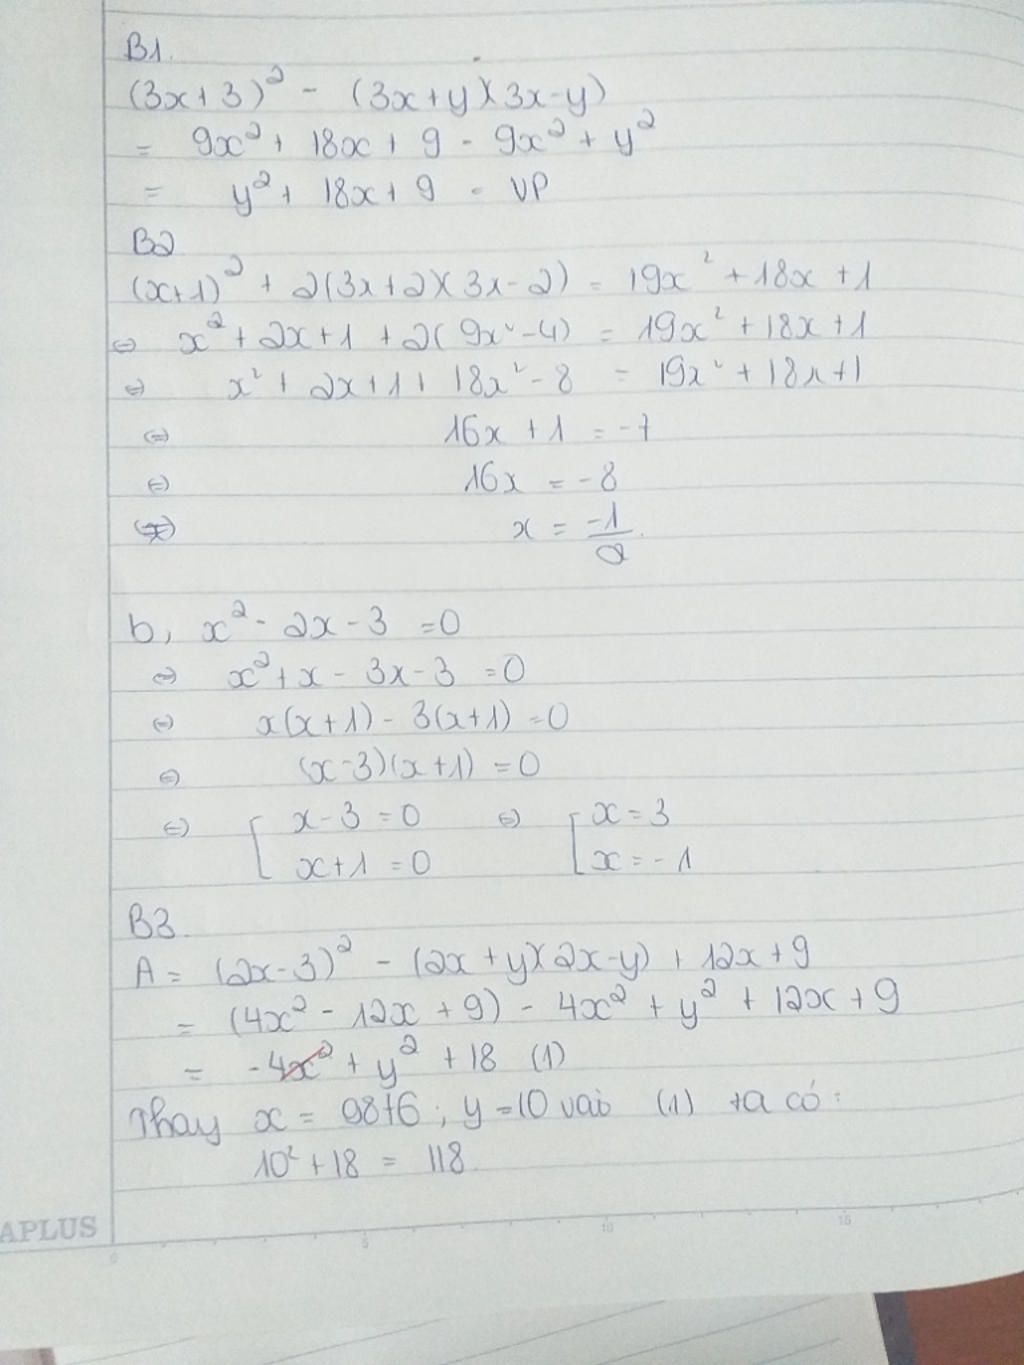 B1.
(3x+3)² - (3x+y)(3x-y)
= 9x² + 18x + 9 - 9x² + y²
= y² + 18x + 9 = VP
B2
(x+1)² + 2(3x+2)(3x-2) = 19x² + 18x + 1
⇔ x² + 2x + 1 + 2(9x² - 4) = 19x² + 18x + 1
⇔ x² + 2x + 1 + 18x² - 8 = 19x² + 18x + 1
⇔ 16x + 1 = -7
⇔ 16x = -8
⇔ x = -1/2
b, x² - 2x - 3 = 0
⇔ x² + x - 3x - 3 = 0
⇔ x(x+1) - 3(x+1) = 0
⇔ (x-3)(x+1) = 0
⇔ [ x-3 = 0 ⇔ [ x = 3
x+1 = 0 x = -1
B3.
A = (2x-3)² - (2x+y)(2x-y) + 12x + 9
= (4x² - 12x + 9) - 4x² + y² + 12x + 9
= -4x² + y² + 18 (1)
Thay x = 9876 ; y = 10 vào (1) ta có :
10² + 18 = 118
APLUS
0 5 10 15